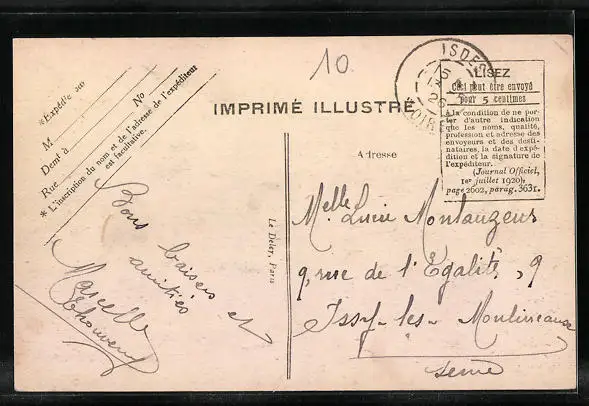 10.
ISDES
15
26
LOIRET
LISEZ
Ceci peut être envoyé
pour 5 centimes
à la condition de ne por-
ter d'autre indication
que les noms, qualité,
profession et adresse des
envoyeurs et des desti-
nataires, la date d'expé-
dition et la signature de
l'expéditeur.
(Journal Officiel,
1er juillet 1920),
page 2602, parag. 3631.
* Expédié par
M
No
Demt à
Rue
* L'inscription du nom et de l'adresse de l'expéditeur
est facultative.
IMPRIMÉ ILLUSTRÉ
Adresse
Bons baisers et
amitiés
Marcelle
Le Deley, Paris
Melle Lucie Montauzeus
9, rue de l'Egalité, 9
Issy-les-Moulineaux
Seine